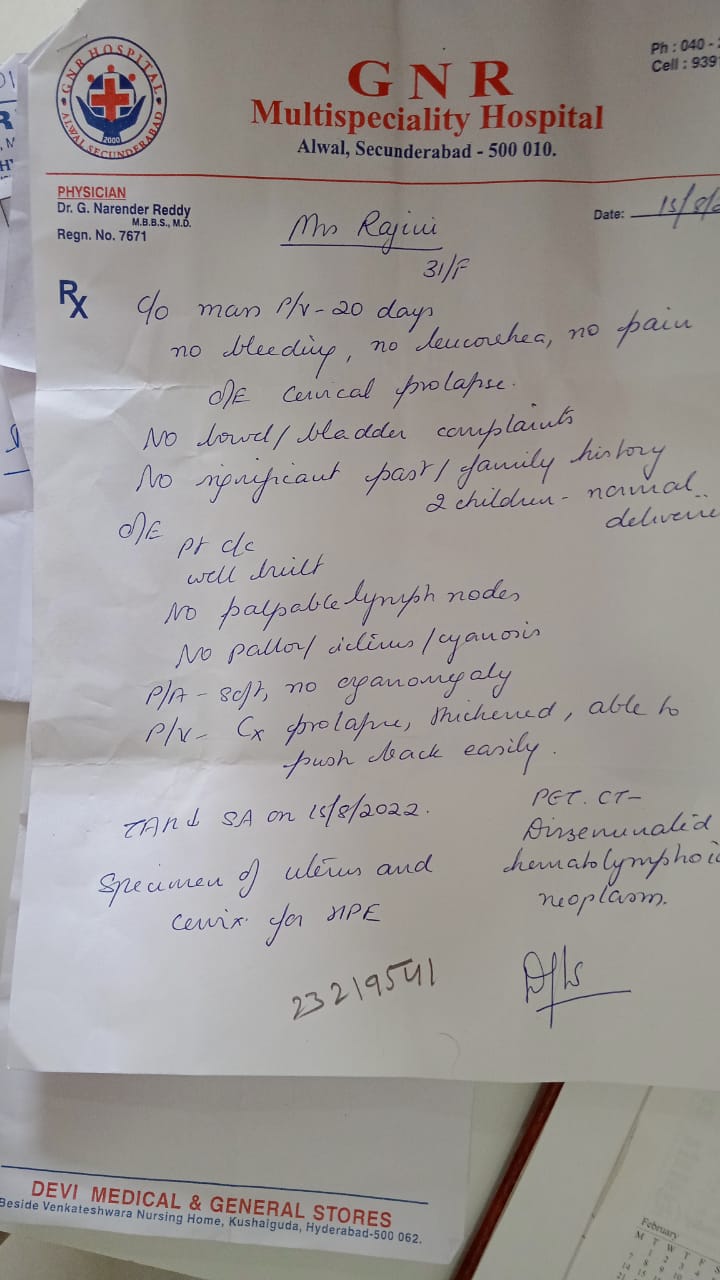 GNR HOSPITAL
ALWAL SECUNDERABAD
2000
G N R
Multispeciality Hospital
Alwal, Secunderabad - 500 010.
Ph : 040 -
Cell : 939
PHYSICIAN
Dr. G. Narender Reddy
M.B.B.S., M.D.
Regn. No. 7671
Date: 15/8/2
Mrs Rajini
31/F
Rx
c/o mass P/V - 20 days
no bleeding, no leucorrhea, no pain
O/E cervical prolapse.
No bowel / bladder complaints
No significant past / family history
2 children - normal
deliverie
O/E
Pt c/c
well built
No palpable lymph nodes
No pallor / icterus / cyanosis
P/A - soft, no organomegaly
P/V - Cx prolapse, thickened, able to
push back easily.
TAH ↓ SA on 15/8/2022.
Specimen of uterus and
cervix for HPE
PET. CT -
Disseminated
hematolymphoi
neoplasm.
23219541
DEVI MEDICAL & GENERAL STORES
Beside Venkateshwara Nursing Home, Kushaiguda, Hyderabad-500 062.
February
M T W T F S